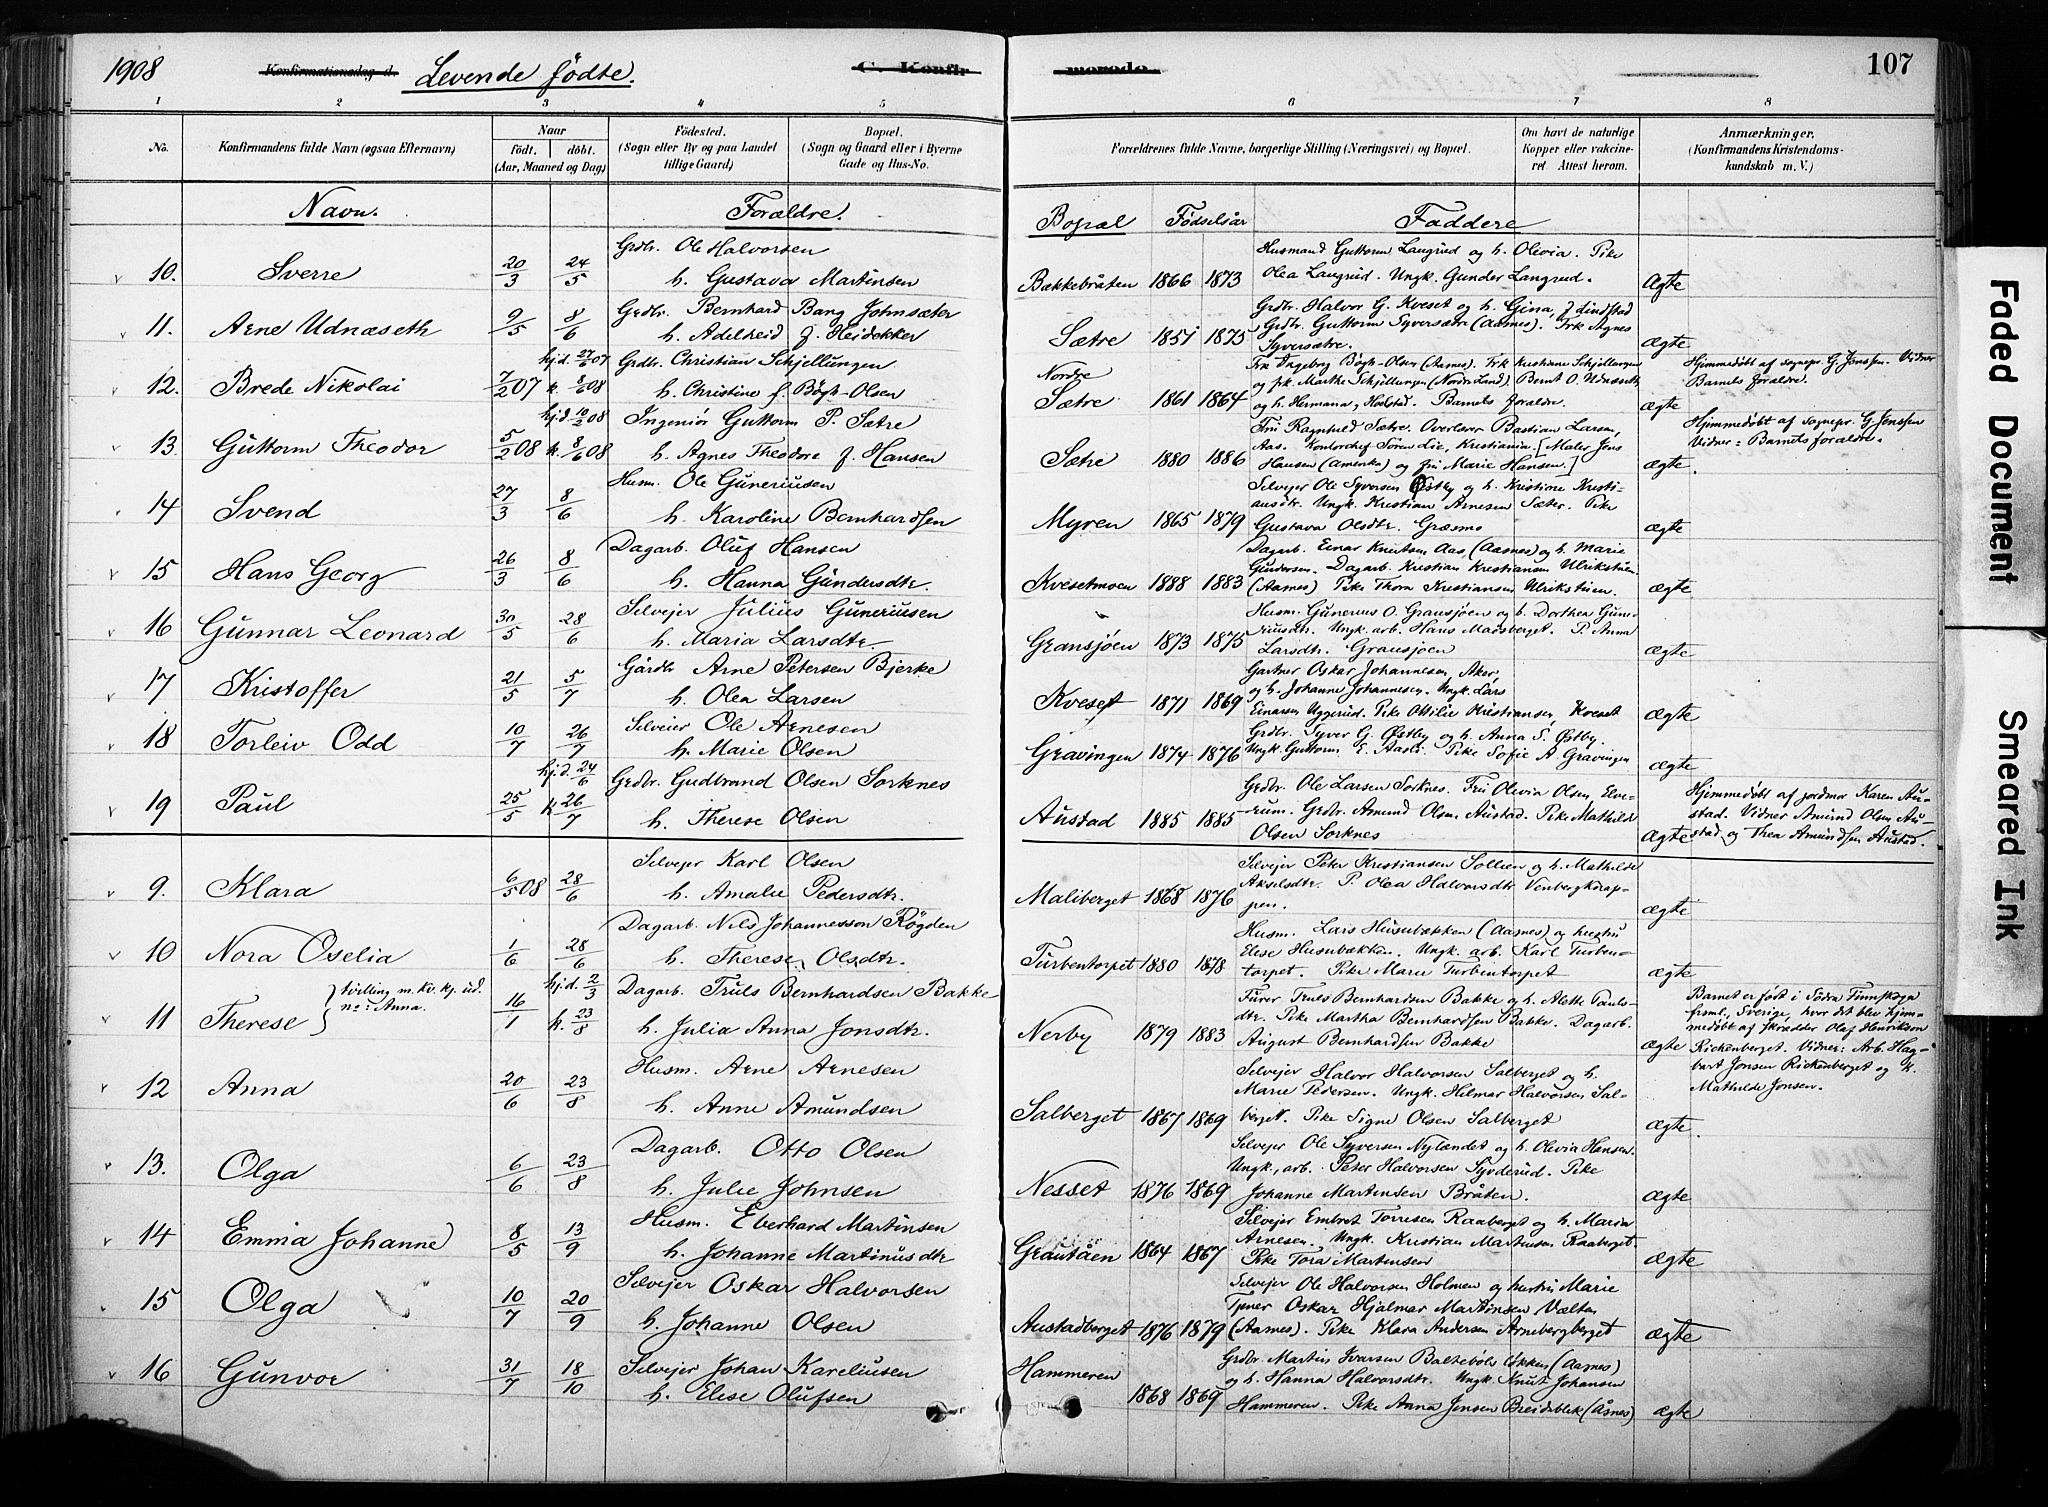 1908 Konfirmationsdag d. Levende fødte. C. Konfir merede 107
1 2 3 4 5 6 7 8
No. Konfirmandens fulde Navn (ogsaa Efternavn) Naar født. døbt. (Aar, Maaned og Dag) Fødested. (Sogn eller By og paa Landet tillige Gaard) Bopæl. (Sogn og Gaard eller i Byerne Gade og Hus-No. Forældrenes fulde Navne, borgerlige Stilling (Næringsvei) og Bopæl. Om havt de naturlige Kopper eller vaccineret Attest herom. Anmærkninger. (Konfirmandens Kristendomskundskab m. V.)
Navn. Forældre. Bopæl Fødselsår Faddere
10. Sverre 20/3 24/5 Grdbr. Ole Halvorsen
h. Gustava Martinsen Bækkebråten 1866 1873
Husmand Guttorm Langrud og h. Olivia. Pike
Olea Langrud. Ungk. Gunder Langrud. Ægte
11. Arne Udnæseth 9/5 8/6 Grdbr. Bernhard Bang Johnsæter
h. Adelheid f. Heidekker Sætre 1851 1875
Grdbr. Halvor G. Kveset og h. Gina f. Lindstad
Grdbr. Guttorm Syversætre (Aasnes). Frk Agnes
Syversætre. ægte
12. Brede Nikolai 7/2 07 hj.d. 27/6 07 k. 8/6 08 Grdbr. Christian Schjellungen
h. Christine f. Bögh-Olsen Nordre Sætre 1861 1864
Fru Dagborg Bögh-Olsen (Aasnes). Frk Kristiane Schjellungen
og frk. Marthe Schjellungen (Nordre Land). Bernt O. Udnæseth
og h. Hermana f. Hodstad. Barnets forældre. ægte
Hjimmedøbt af sognepr. G. Jenssen. Vidner
Barnets forældre.
13. Guttorm Theodor 5/2 08 hj.d. 10/2 08 k. 8/6 08 Ingeniør Guttorm P. Sætre
h. Agnes Theodore f. Hansen Sætre 1880 1886
Fru Ragnhild Sætre. Overlærer Bastian Larsen,
Aas. Kontorchef Sören Lie, Kristiania [Maler Jens
Hansen (Amerika) og fru Marie Hansen.] ægte.
Hjemmedøbt af sognepr. G. Jenssen
Vidner: Barnets forældre.
14 Svend 27/3 8/6 Husm. Ole Guneriusen
h. Karoline Bernhardsen Myren 1865 1879
Selvejer Ole Syversen Østby og h. Kristine Kristi-
ansdtr. Ungk. Kristian Arnesen Sæter. Pike
Gustava Olsdtr. Græsmo ægte
15 Hans Georg 26/3 8/6 Dagarb. Oluf Hansen
h. Hanna Gundersdtr. Kvesetmoen 1888 1883
Dagarb. Einar Knutsen Aas, (Aasnes) og h. Marie
Gundersen. Dagarb. Kristian Kristiansen Ulrikstuen
(Aasnes) Pike Thora Kristiansen Ulrikstuen. ægte
16 Gunnar Leonard 30/5 28/6 Selvejer Julius Guneriusen
h. Maria Larsdtr. Gransjøen 1873 1875
Husm. Gunerius O. Gransjøen og h. Dorthea Gune-
riusdtr. Ungk. arb. Hans Madsberget. P. Anna
Larsdtr. Gransjøen ægte
17 Kristoffer 21/5 5/7 Gårdbr Arne Petersen Bjerke
h. Olea Larsen Kveset 1871 1869
Gartner Oskar Johannesen, Aker,
og h. Johanne Johannesen. Ungk. Lars
Einarsen Uggerud. Pike Ottilie Kristiansen, Kveset ægte
18 Torleiv Odd 10/7 26/7 Selveier Ole Arnesen
h. Marie Olsen Gravingen 1874 1876
Grdbr. Syver G. Østby og h. Anna S. Østby.
Ungk. Guttorm E. Aasli. Pike Sofie A. Gravingen ægte
19 Paul 25/5 hj.d. 24/6 k. 26/7 Grdbr. Gudbrand Olsen Sorknes
h. Therese Olsen Austad 1885 1885
Grdbr. Ole Larsen Sorknes. Fru Olivia Olsen, Elve-
rum. Grdbr. Amund Olsen Austad. Pike Mathilde
Olsen Sorknes ægte
Hjimmedøbt af jordmor Karen Au-
stad. Vidner Amund Olsen Au-
stad og Thea Amundsen Austad.
9. Klara 6/5 08 28/6 Selvejer Karl Olsen
h. Amalie Pedersdtr. Maliberget 1868 1876
Selvejer Peter Kristiansen Sollien og h. Mathilde
Akselsdtr. P. Olea Halvorsdtr Venbergknap-
pen. ægte
10 Nora Oselia 1/6 28/6 Dagarb. Nils Johannesson Rögden
h. Therese Olsdtr. Turbentorpet 1880 1878
Husm. Lars Husubækken (Aasnes) og hustru
Elise Husubækken. Ungk. arb. Karl Turben-
torpet. Pike Marie Turbentorpet ægte
11 Therese } tvilling m. kv. kj. ud.
no: Anna. 16/1 hj.d. 2/3 k. 23/8 Dagarb. Truls Bernhardsen Bakke
h. Julia Anna Jonsdtr. Nerby 1879 1883
Furer Truls Bernhardsen Bakke og h. Alette Pauls-
dtr. Pike Martha Bernhardsen Bakke. Dagarb.
August Bernhardsen Bakke ægte
Barnet er født i Södra Finnskoga
frsml., Sverige, hvor det blev hjem-
medöbt af skrædder Olaf Henrikson
Rickenberget. Vidner: Arb. Hag-
bart Jonsen Rickenberget og h.
Mathilde Jonsen.
12 Anna 20/6 23/8 Husm. Arne Arnesen
h. Anne Amundsen Salberget 1867 1869
Selvejer Halvor Halvorsen Salberget og h.
Marie Pedersen. Ungk. Hilmar Halvorsen Sal-
berget. Pike Signe Olsen Salberget ægte.
13. Olga 6/6 23/8 Dagarb. Otto Olsen
h. Julie Johnsen Nesset 1876 1869
Selvejer Ole Syversen Nylændet og h. Olivia Hansen.
Ungk. arb. Peter Halvorsen Syvderud. Pike
Johanne Martinsen Bråten. ægte
14 Emma Johanne 8/5 13/9 Husm. Eberhard Martinsen
h. Johanne Martinusdtr Grautåen 1864 1867
Selvejer Embret Torresen Raaberget og h. Maria
Arnesen. Ungk. Kristian Martinsen Raaberget.
Pike Tora Martinsen ægte
15 Olga 10/7 20/9 Selvejer Oskar Halvorsen
h. Johanne Olsen Austadberget 1876 1879
Selvejer Ole Halvorsen Holmen og hustru Marie
Tjener Oskar Hjalmar Martinsen Vælten
(Aasnes). Pike Klara Andersen Arnebergberget ægte
16 Gunvor 31/7 18/10 Selvejer Johan Kareliusen
h. Elise Olufsen Hammeren 1868 1869
Grdbr. Martin Ivarsen Baltebøls løkken (Aasnes)
og h. Hanna Halvorsdtr. Ungk. Knut Johansen
Hammeren. Pike Anna Jensen Breidablik (Åsnes) ægte
Faded Document
Smeared Ink